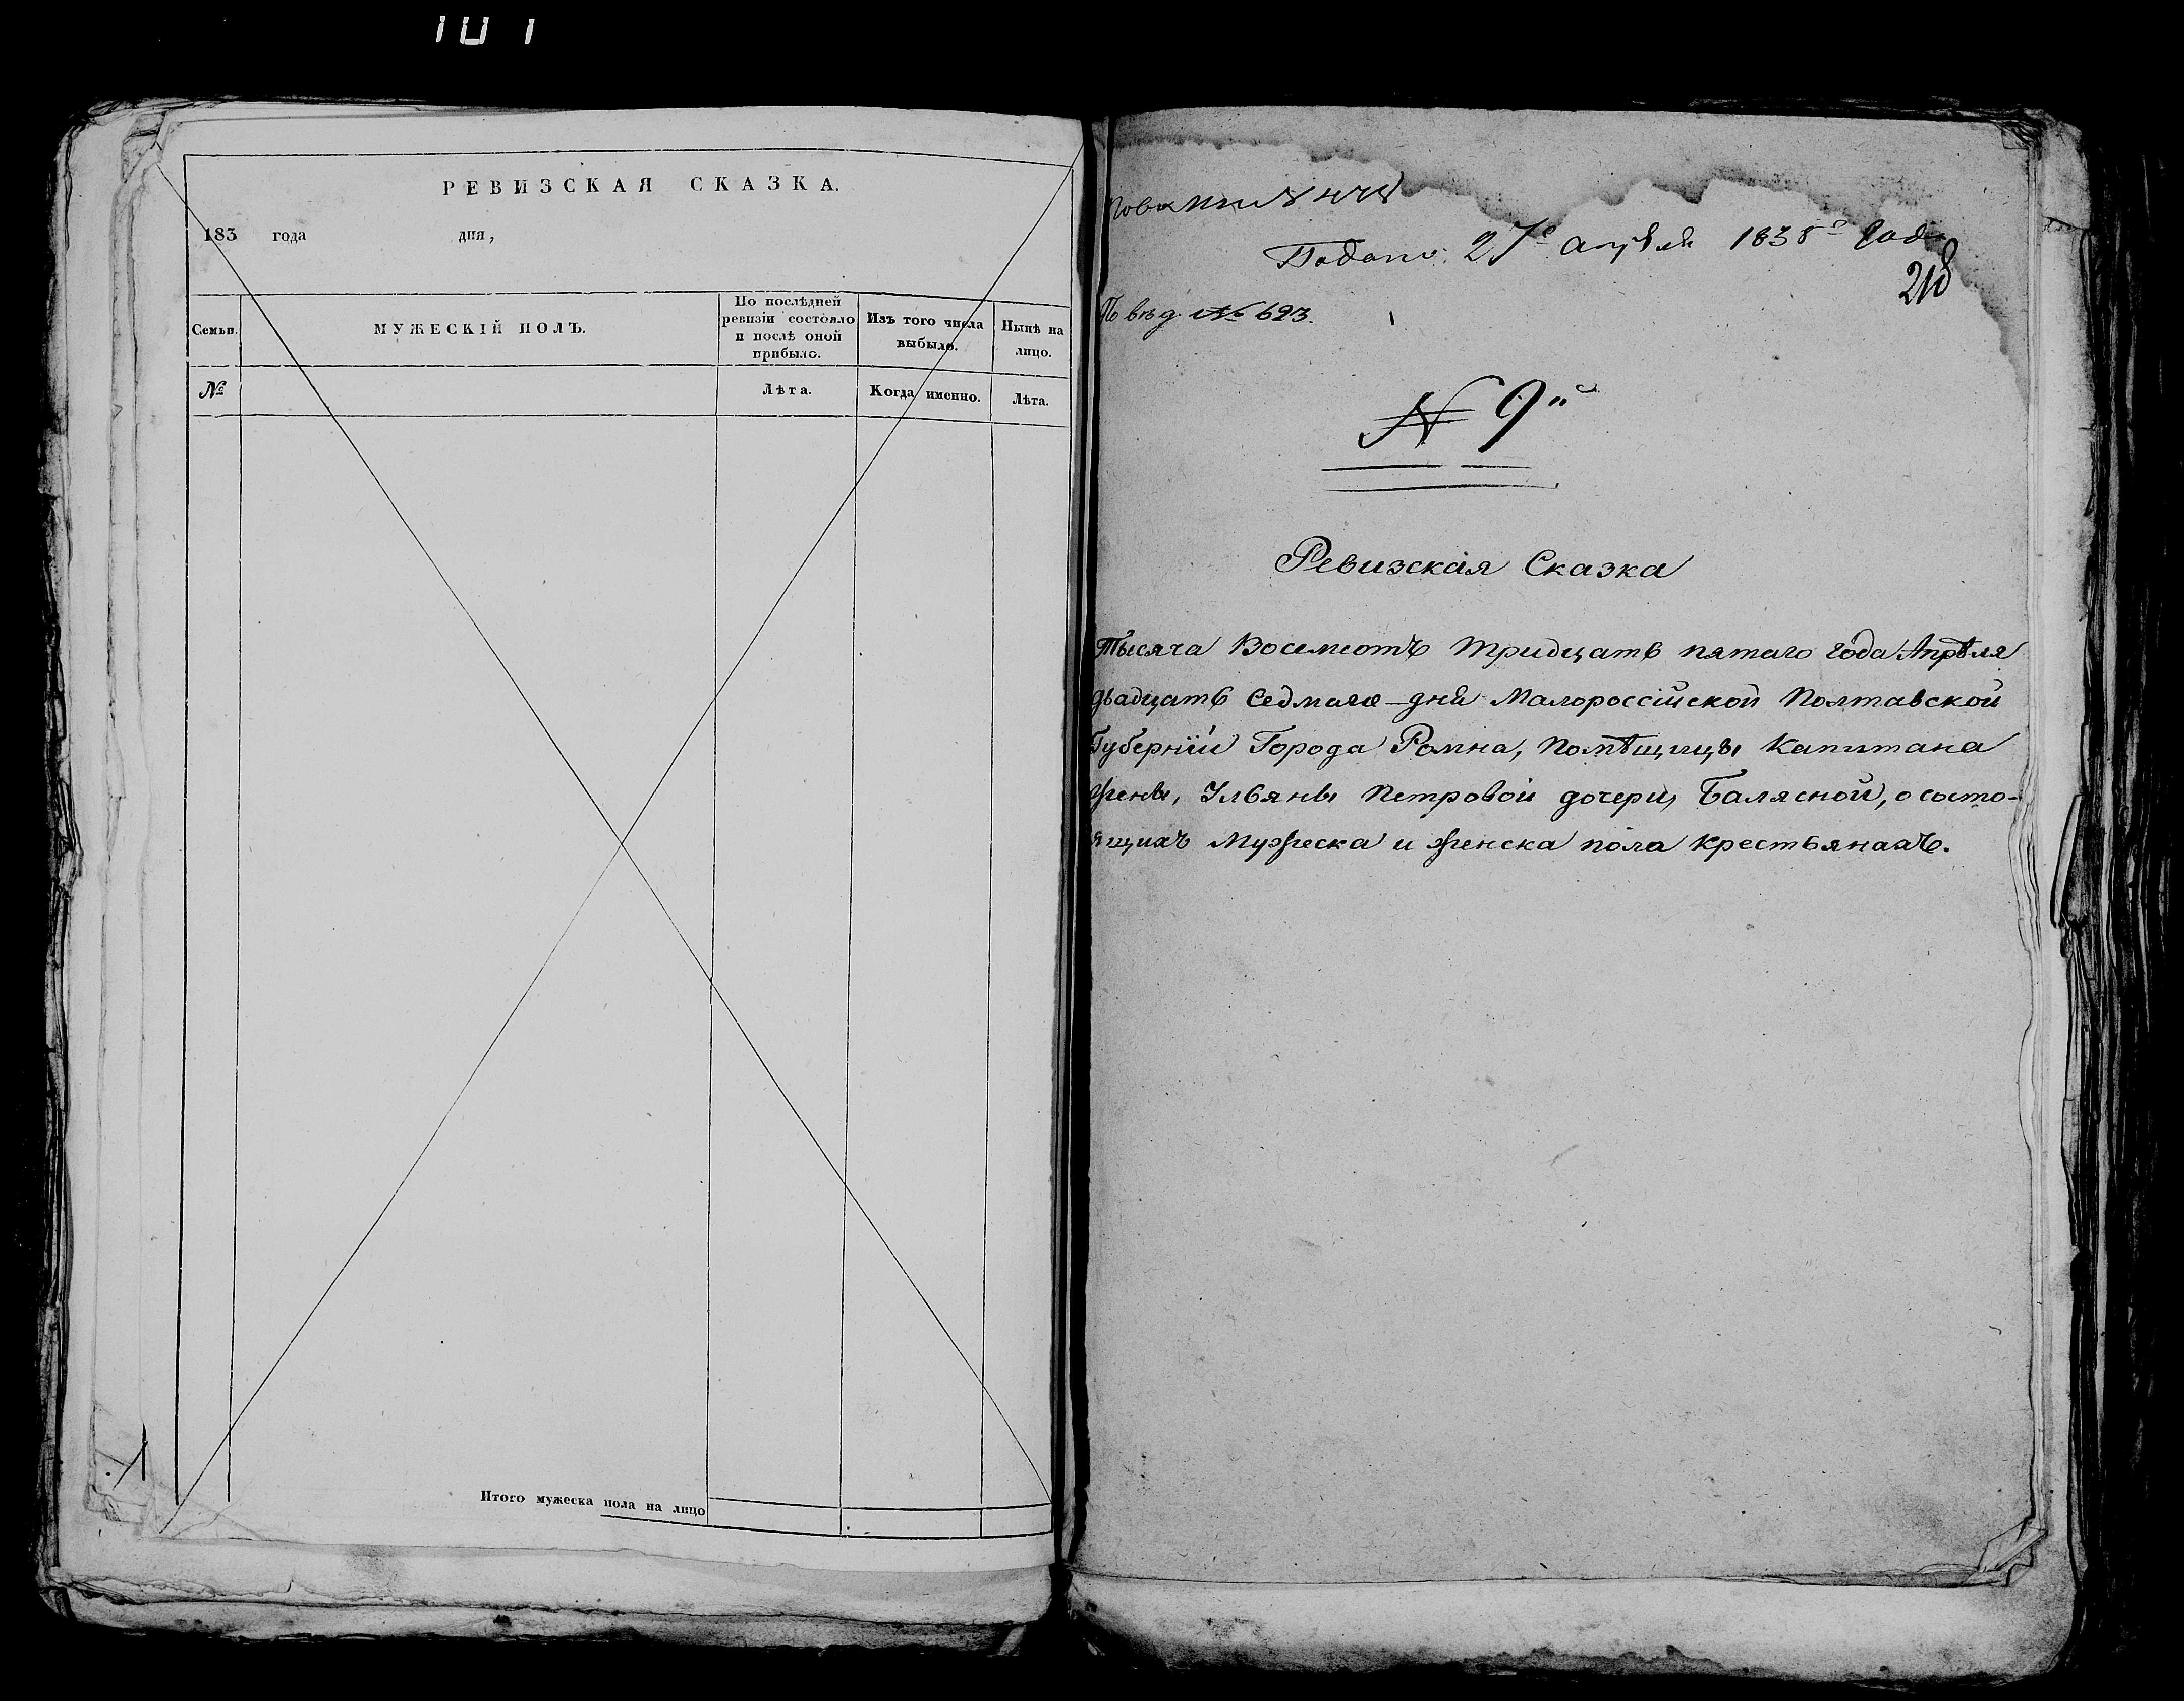 101
РЕВИЗСКАЯ СКАЗКА.
183 года дня,
Семьи. МУЖЕСКІЙ ПОЛЪ. По послѣдней ревизіи состояло и послѣ оной прибыло. Изъ того числа выбыло. Нынѣ на лицо.
№ Лѣта. Когда именно. Лѣта.
Итого мужеска пола на лицо
Подано 27го апреля 1835го Года
218
№ 623.
№ 9й
Ревизская Сказка
Тысяча Восемсотъ тридцать пятаго года Апрѣля
двадцать Седмаго дня Малороссійской Полтавской
Губерніи Города Ромна, Помѣщицы Капитана
жены, Ульяны Петровой дочери, Балясной, о состо-
ящихъ Мужеска и женска пола крестьянахъ.